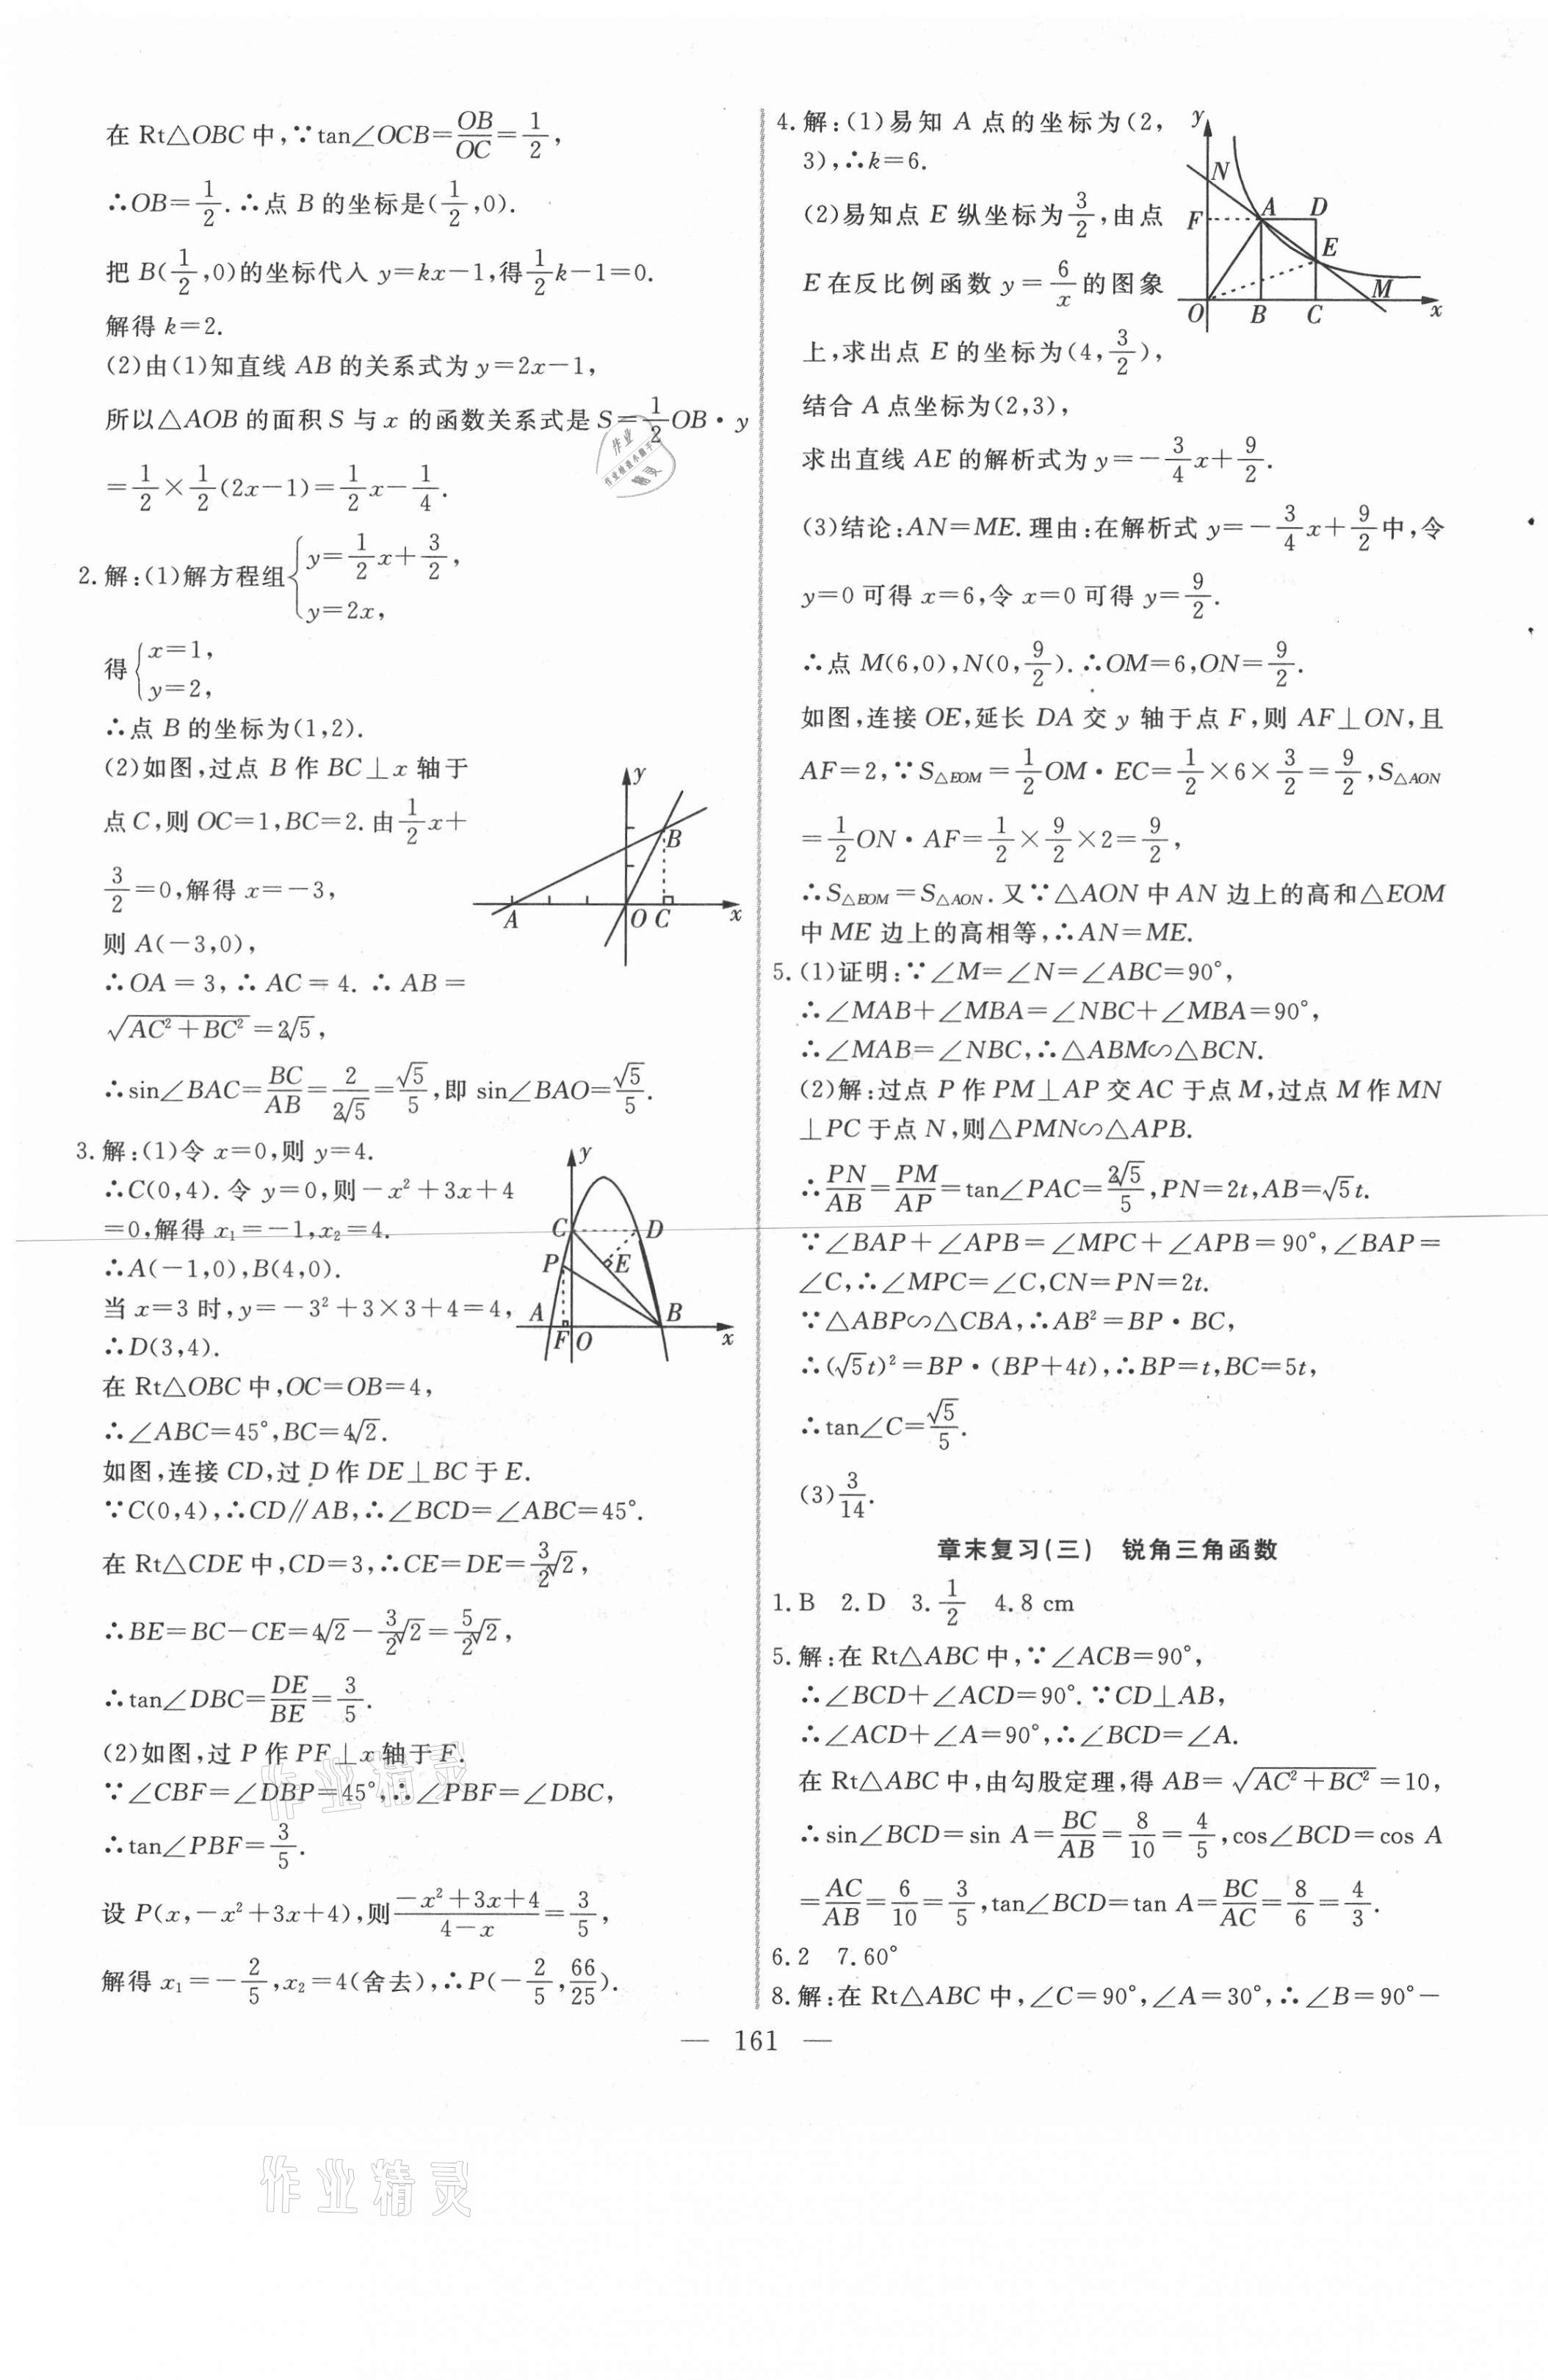 在 Rt△OBC 中,∵tan∠OCB=OB/OC=1/2,
∴OB=1/2.∴点 B 的坐标是(1/2,0).
把 B(1/2,0)的坐标代入 y=kx-1,得1/2k-1=0.
解得 k=2.
(2)由(1)知直线 AB 的关系式为 y=2x-1,
所以△AOB 的面积 S 与 x 的函数关系式是 S=1/2OB·y
=1/2×1/2(2x-1)=1/2x-1/4.
2.解:(1)解方程组{y=1/2x+3/2,
y=2x,
得{x=1,
y=2,
∴点 B 的坐标为(1,2).
(2)如图,过点 B 作 BC⊥x 轴于
点C,则 OC=1,BC=2.由1/2x+
3/2=0,解得 x=-3,
则 A(-3,0),
∴OA=3,∴AC=4.∴AB=
√(AC²+BC²)=2√5,
∴sin∠BAC=BC/AB=2/(2√5)=√5/5,即 sin∠BAO=√5/5.
y
B
A
O
C
x
3.解:(1)令 x=0,则 y=4.
∴C(0,4).令 y=0,则-x²+3x+4
=0,解得 x₁=-1,x₂=4.
∴A(-1,0),B(4,0).
当 x=3 时,y=-3²+3×3+4=4,
∴D(3,4).
在 Rt△OBC 中,OC=OB=4,
∴∠ABC=45°,BC=4√2.
如图,连接 CD,过 D 作 DE⊥BC 于 E.
∵C(0,4),∴CD∥AB,∴∠BCD=∠ABC=45°.
在 Rt△CDE 中,CD=3,∴CE=DE=3/2√2,
∴BE=BC-CE=4√2-3/2√2=5/2√2,
∴tan∠DBC=DE/BE=3/5.
(2)如图,过 P 作 PF⊥x轴于 F.
∵∠CBF=∠DBP=45°,∴∠PBF=∠DBC,
∴tan∠PBF=3/5.
设 P(x,-x²+3x+4),则(-x²+3x+4)/(4-x)=3/5,
解得 x₁=-2/5,x₂=4(舍去),∴P(-2/5,66/25).
y
C
D
P
E
A
B
F
O
x
4.解:(1)易知 A 点的坐标为(2,
3),∴k=6.
(2)易知点 E 纵坐标为3/2,由点
E 在反比例函数 y=6/x的图象
上,求出点 E 的坐标为(4,3/2),
结合 A 点坐标为(2,3),
求出直线 AE 的解析式为 y=-3/4x+9/2.
y
N
F
A
D
E
M
O
B
C
x
(3)结论:AN=ME.理由:在解析式 y=-3/4x+9/2中,令
y=0 可得 x=6,令 x=0 可得 y=9/2.
∴点 M(6,0),N(0,9/2).∴OM=6,ON=9/2.
如图,连接 OE,延长 DA 交 y 轴于点 F,则 AF⊥ON,且
AF=2,∵S△EOM=1/2OM·EC=1/2×6×3/2=9/2,S△AON
=1/2ON·AF=1/2×9/2×2=9/2,
∴S△EOM=S△AON.又∵△AON 中 AN 边上的高和△EOM
中 ME 边上的高相等,∴AN=ME.
5.(1)证明:∵∠M=∠N=∠ABC=90°,
∴∠MAB+∠MBA=∠NBC+∠MBA=90°,
∴∠MAB=∠NBC,∴△ABM∽△BCN.
(2)解:过点 P 作 PM⊥AP 交 AC 于点 M,过点 M 作 MN
⊥PC 于点 N,则△PMN∽△APB.
∴PN/AB=PM/AP=tan∠PAC=2√5/5,PN=2t,AB=√5t.
∵∠BAP+∠APB=∠MPC+∠APB=90°,∠BAP=
∠C,∴∠MPC=∠C,CN=PN=2t.
∵△ABP∽△CBA,∴AB²=BP·BC,
∴(√5t)²=BP·(BP+4t),∴BP=t,BC=5t,
∴tan∠C=√5/5.
(3)3/14.
章末复习(三) 锐角三角函数
1.B 2.D 3.1/2 4.8 cm
5.解:在 Rt△ABC 中,∵∠ACB=90°,
∴∠BCD+∠ACD=90°.∵CD⊥AB,
∴∠ACD+∠A=90°,∴∠BCD=∠A.
在 Rt△ABC 中,由勾股定理,得 AB=√(AC²+BC²)=10,
∴sin∠BCD=sin A=BC/AB=8/10=4/5,cos∠BCD=cos A
=AC/AB=6/10=3/5,tan∠BCD=tan A=BC/AC=8/6=4/3.
6.2 7.60°
8.解:在 Rt△ABC 中,∠C=90°,∠A=30°,∴∠B=90°-
— 161 —
作业精灵
作业精灵